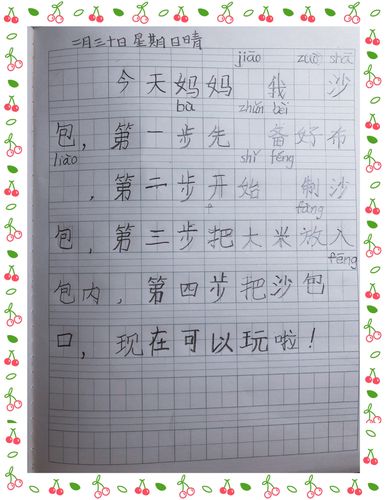 三月三十日 星期日晴
jiāo zuò shā
今天妈妈 我 沙
bù zhǔn bèi
包，第一步先 备好布
liào shǐ féng
，第二步开始 制沙
fàng
包，第三步把大米放入
fēng
包内，第四步把沙包
口，现在可以玩啦！